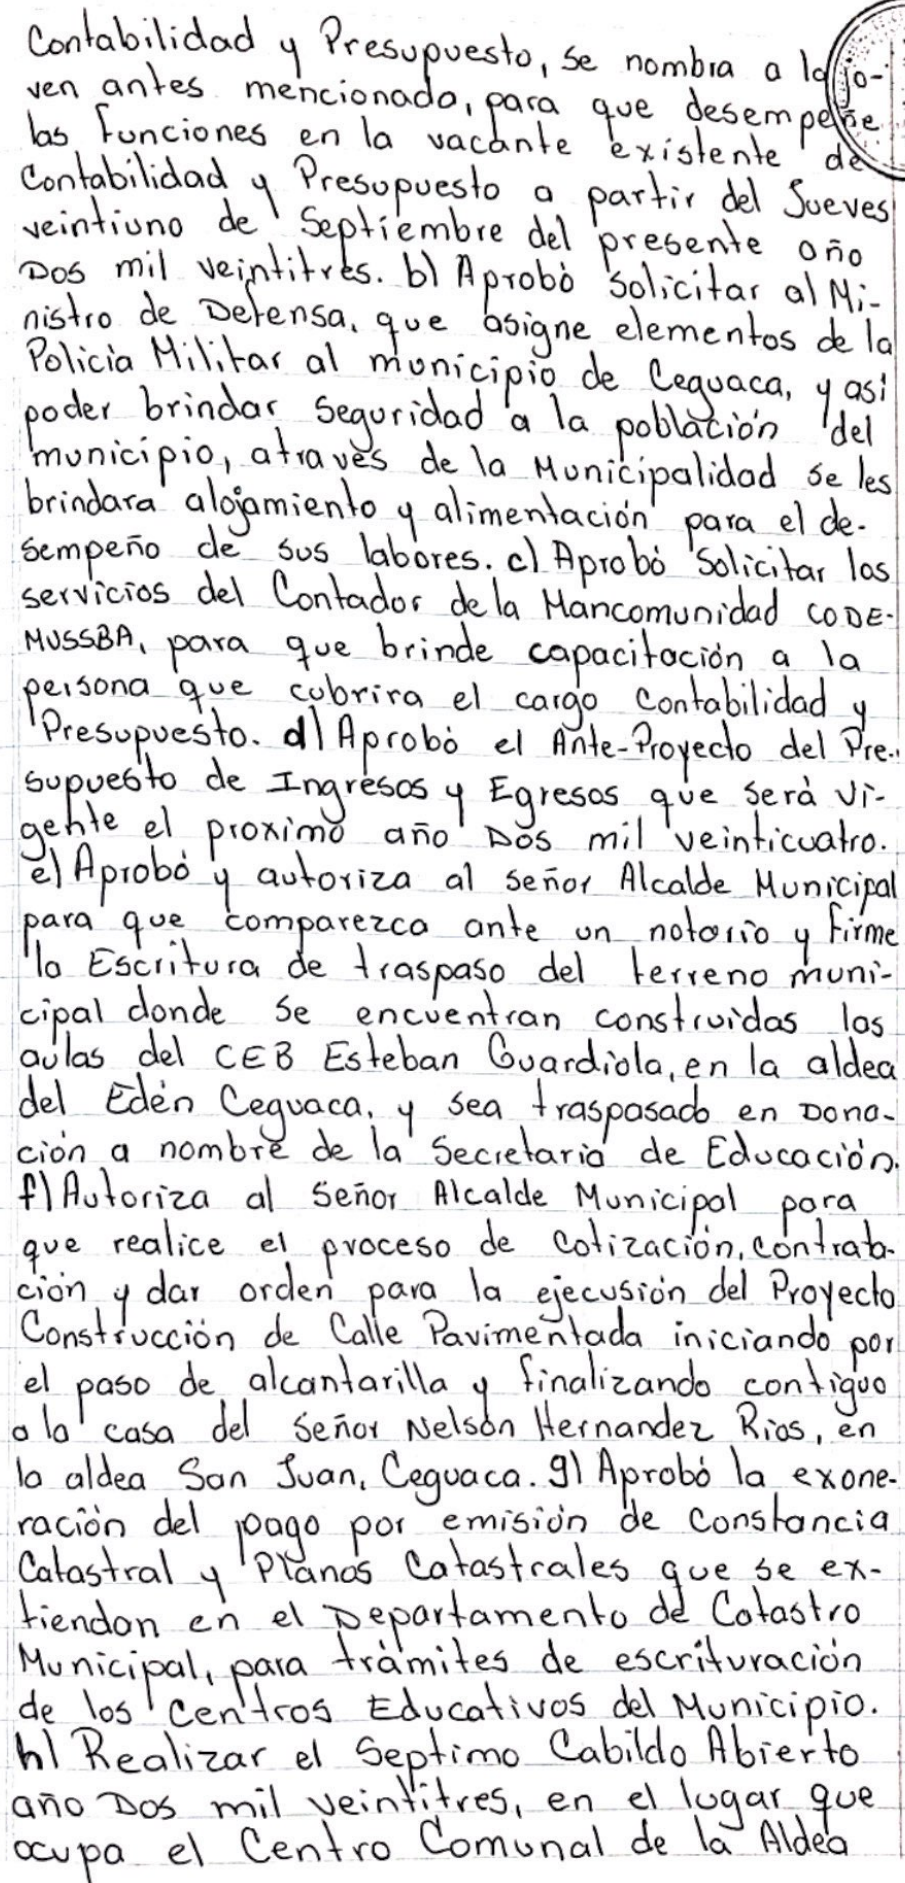 Contabilidad y Presupuesto, se nombra a la jo-
ven antes mencionada, para que desempeñe
las funciones en la vacante existente de
Contabilidad y Presupuesto a partir del Jueves
veintiuno de Septiembre del presente año
Dos mil veintitrés. b) Aprobó Solicitar al Mi-
nistro de Defensa, que asigne elementos de la
Policia Militar al municipio de Ceguaca, y asi
poder brindar seguridad a la población del
municipio, através de la Municipalidad se les
brindara alojamiento y alimentación para el de-
sempeño de sus labores. c) Aprobó Solicitar los
servicios del Contador de la Mancomunidad CODE-
MUSSBA, para que brinde capacitación a la
persona que cubrira el cargo Contabilidad y
Presupuesto. d) Aprobó el Ante-Proyecto del Pre-
supuesto de Ingresos y Egresos que será vi-
gente el proximo año Dos mil veinticuatro.
e) Aprobó y autoriza al señor Alcalde Municipal
para que comparezca ante un notario y firme
la Escritura de traspaso del terreno muni-
cipal donde se encuentran construidas las
aulas del CEB Esteban Guardiola, en la aldea
del Edén Ceguaca, y sea traspasado en Dona-
ción a nombre de la Secretaria de Educación.
f) Autoriza al Señor Alcalde Municipal para
que realice el proceso de cotización, contrata-
ción y dar orden para la ejecusión del Proyecto
Construcción de Calle Pavimentada iniciando por
el paso de alcantarilla y finalizando contiguo
a la casa del Señor Nelson Hernandez Rios, en
la aldea San Juan, Ceguaca. g) Aprobó la exone-
ración del pago por emisión de Constancia
Catastral y Planos Catastrales que se ex-
tiendan en el Departamento de Catastro
Municipal, para trámites de escrituración
de los Centros Educativos del Municipio.
h) Realizar el Septimo Cabildo Abierto
año Dos mil veintitres, en el lugar que
ocupa el Centro Comunal de la Aldea